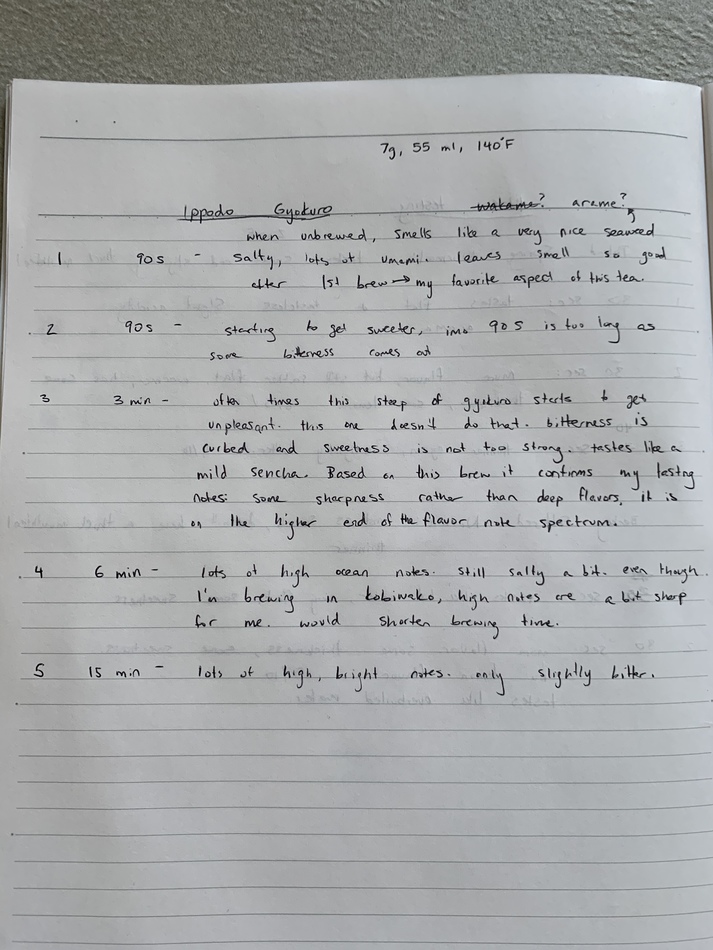 7g, 55 ml, 140°F
Ippodo Gyokuro wakame? arame?
when unbrewed, smells like a very nice seaweed
1 90s - salty, lots of umami. leaves smell so good
after 1st brew → my favorite aspect of this tea.
2 90s - starting to get sweeter, imo 90s is too long as
some bitterness comes out
3 3 min - often times this steep of gyokuro starts to get
unpleasant. this one doesn't do that. bitterness is
curbed and sweetness is not too strong. tastes like a
mild sencha. Based on this brew it confirms my tasting
notes: some sharpness rather than deep flavors, it is
on the higher end of the flavor note spectrum.
4 6 min - lots of high ocean notes. still salty a bit. even though
I'm brewing in kobiwako, high notes are a bit sharp
for me. would shorten brewing time.
5 15 min - lots of high, bright notes. only slightly bitter.